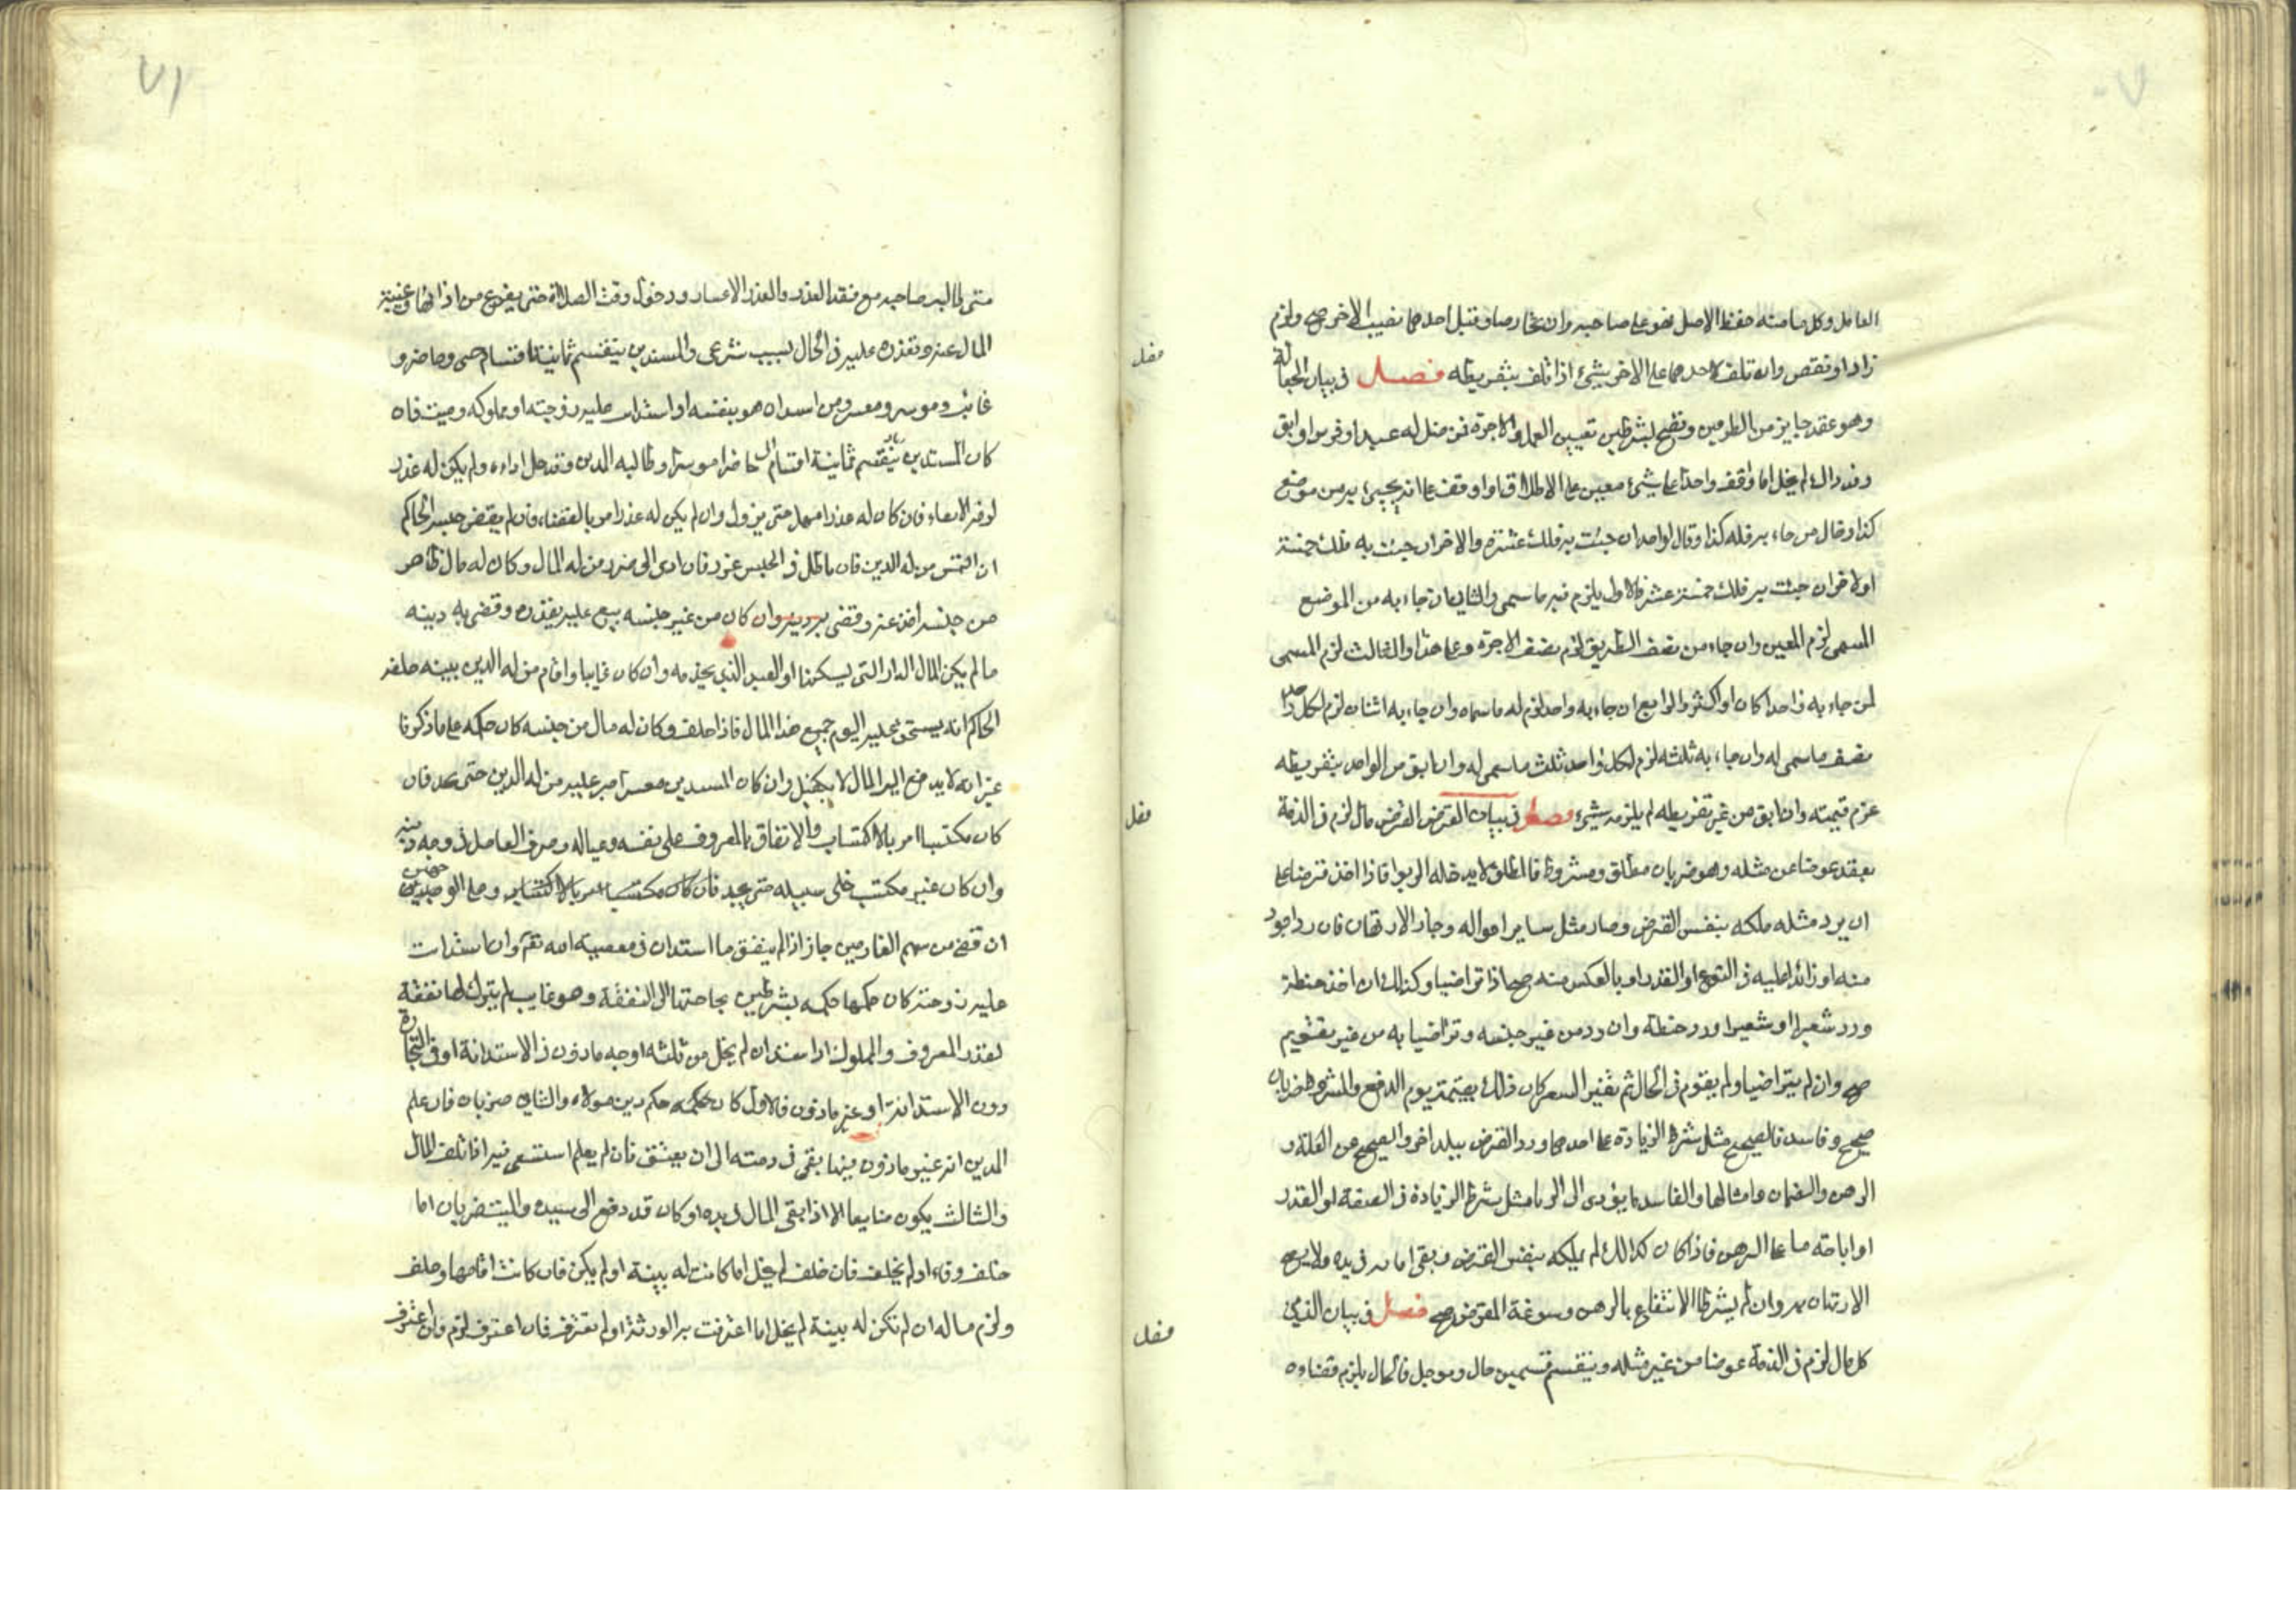 ٧٠
العامل وكل ما منه حفظ الاصل فهو على صاحبه وان تخارصا وقبل احدهما نصيب الاخر صح ولزم
زاد او نقص وان تلف لاحدهما على الاخر بشيء اذا تلف بتفريطه فصل في بيان الجعالة
وهو عقد جايز من الطرفين وتصح بشرطين تعيين العمل والاجرة فمن ضل له عبد او فرس او ابق
ونذر الم يخل اما وقف واحدا على شيء معين على الاطلاق او اوقف على انه يجيء به من موضع
كذا وقال من جاء به فله كذا وقال لواحد ان جئت به فلك عشرة والاخر ان جئت به فلك خمسة
او لاخر ان جئت به فلك خمسة عشر فالاول يلزم فيه ما سمى والثاني ان جاء به من الموضع
المسمى لزم المعين وان جاء من نصف الطريق لزم نصف الاجرة وعلى هذا والثالث لزم المسمى
لمن جاء به واحدا كان او اكثر والرابع ان جاء به واحد لزم له ما سماه وان جاء به اثنان لزم لكل واحد
نصف ما سمى له وان جاء به ثلثه لزم لكل واحد ثلث ما سمى له وان ابق من الواحد بتفريطه
غرم قيمته وان ابق من غير تفريطه لم يلزمه شيء فصل في بيان القرض القرض مال لزم في الذمة
بعقد عوضا عن مثله وهو ضربان مطلق ومشروط فالمطلق لا يدخله الربوا فاذا اخذ قرضا على
ان يرد مثله ملكه بنفس القرض وصار مثل ساير امواله وجاز الارتهان فان رد اجود
منه او زائدا عليه في النوع او القدر او بالعكس منه صح اذا تراضيا وكذلك ان اخذ حنطة
ورد شعيرا او شعيرا ورد حنطة وان رد من غير جنسه وتراضيا به من غير تقويم
صح وان لم يتراضيا ولم يقوم في الحال ثم تغير السعر كان ذلك بقيمة يوم الدفع والمشروط ضربان
صحيح وفاسد فالصحيح مثل شرط الزيادة على احدهما ورد القرض ببلد اخر والصحيح عن الغلة و
الرهن والضمان وامثالها والفاسد ما يؤدى الى الربا مثل شرط الزيادة في الصفة او القدر
او اباحته ما على الرهن فاذا كان كذلك لم يملكه بنفس القرض وبقى امانه في يده ولا يصح
الارتهان به وان لم يشرط الانتفاع بالرهن وسوغة المقرض صح فصل في بيان الدين
كل مال لزم في الذمة عوضا من غير مثله وينقسم قسمين حال وموجل فالحال يلزم قضاءه
٧١
متى طالبه صاحبه مع فقد العذر والعذر الاعسار ودخول وقت الصلاة حتى يفرغ من اذائها وغيبة
المال عنه وتعذره عليه في الحال بسبب شرعى والمستدين ينقسم ثمانية اقسام حى وحاضر و
غائب وموسر ومعسر ومن استدان هو بنفسه او استدان عليه زوجته او مملوكه وميت فان
كان المستدين ينقسم ثمانية اقسام حاضرا موسرا وطالبه المدين وقد حل اداءه ولم يكن له عذر
لزمه الايفاء فان كان له عذر امهل حتى يزول وان لم يكن له عذر امر بالقضاء فان لم يقض حبسه الحاكم
ان التمس من له الدين فان ماطل في الحبس عزر فان ادى الى ضرر من له المال وكان له مال ظاهر
من جنسه اخذ عنه وقضى به دينه وان كان من غير جنسه بيع عليه بقدره وقضى به دينه
ما لم يكن المال الدار التى يسكنها او العبد الذي يخدمه وان كان غايبا واقام من له الدين بينه حلفه
الحاكم انه يستحق عليه اليوم جميع هذا المال فاذا حلف وكان له مال من جنسه كان حكمه على ما ذكرنا
غير انه لا يدفع اليه المال الا بكفيل وان كان المستدين معسرا صبر عليه من له الدين حتى يجد فان
كان مكتسبا امر بالاكتساب والانفاق بالمعروف على نفسه وعياله وصرف الفاضل في وجه دينه
وان كان غير مكتسب خلى سبيله حتى يجد فان كان مكتسبا امر بالاكتساب وعلى الوجهين
ان قضى من سهم الغارمين جاز اذا لم ينفق ما استدان في معصية الله تع وان استدانت
عليه زوجته كان حكمها حكمه بشرطين بحاجتها الى النفقة وهو غايب لم يترك لها نفقة
بقدر المعروف والمملوك اذا استدان لم يخل من ثلثه اوجه ماذون في الاستدانة او في التجارة
دون الاستدانة او غير ماذون فالاول كان حكمه حكم دين مولاه والثانى ضربان فان علم
المدين انه غير ماذون فيها بقى في ذمته الى ان يعتق فان لم يعلم استسعى فيه اذا تلف المال
والثالث يكون ضايعا الا اذا بقى المال في يده او كان قد دفع الى سيده والميت ضربان اما
خلف وفاء او لم يخلف فان خلف لم يخل اما كانت له بينة او لم يكن فان كانت اقامها وحلف
ولزم ماله ان لم تكن له بينة لم يخل اما اعترفت به الورثة او لم تعترف فان اعترف لزم وان اعترف